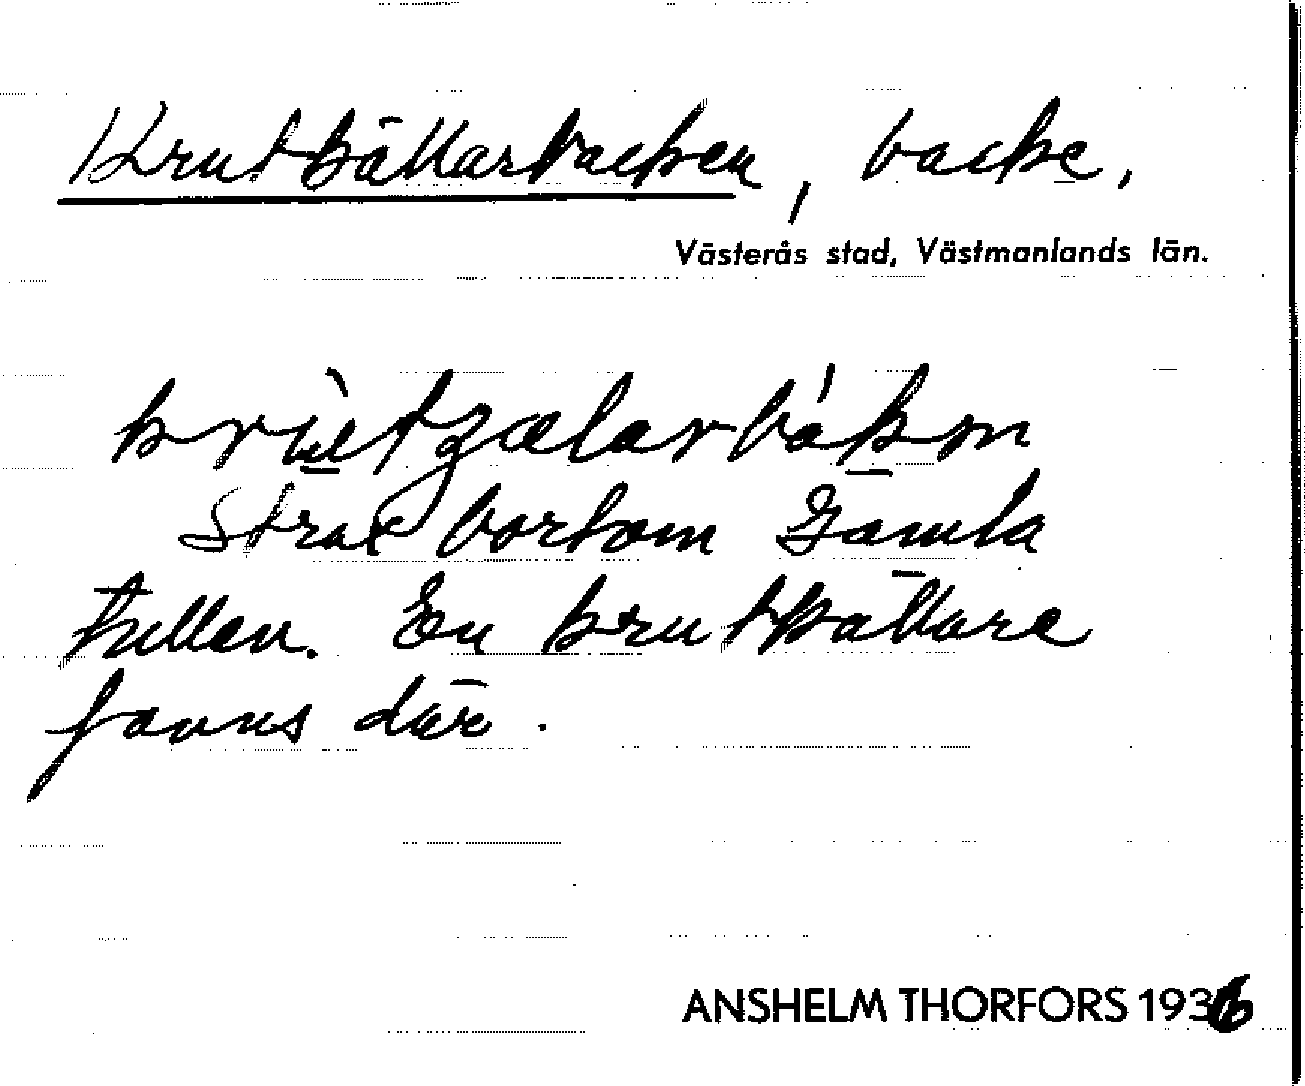 Krutkällarbacken, backe,
Västerås stad, Västmanlands län.
Strax bortom Gamla
tullen. En krutkällare
fanns där.
ANSHELM THORFORS 1936